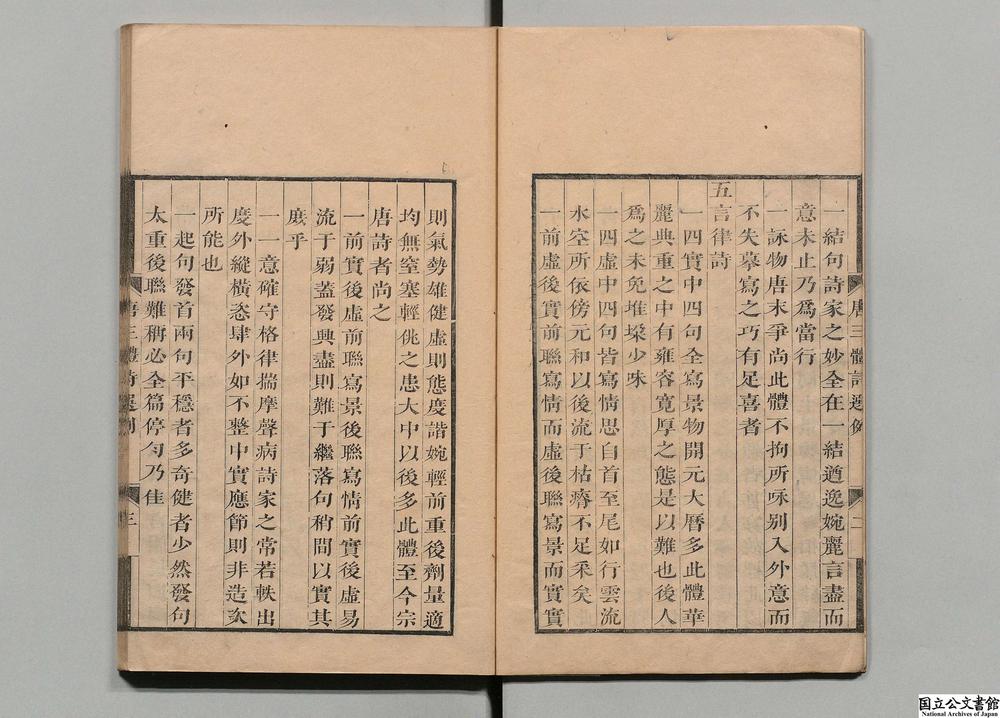 一結句詩家之妙全在一結遒逸婉麗言盡而
意未止乃爲當行
一詠物唐末爭尚此體不拘所咏别入外意而
不失摹寫之巧有足喜者
五言律詩
一四實中四句全寫景物開元大曆多此體華
麗典重之中有雍容寬厚之態是以難也後人
爲之未免堆垜少味
一四虛中四句皆寫情思自首至尾如行雲流
水空所依傍元和以後流于枯瘠不足采矣
一前虛後實前聯寫情而虛後聯寫景而實實
唐三體詩選例
二
則氣勢雄健虛則態度諧婉輕前重後劑量適
均無窒塞輕佻之患大中以後多此體至今宗
唐詩者尚之
一前實後虛前聯寫景後聯寫情前實後虛易
流于弱蓋發興盡則難于繼落句稍間以實其
庶乎
一一意確守格律揣摩聲病詩家之常若軼出
度外縱橫恣肆外如不整中實應節則非造次
所能也
一起句發首兩句平穩者多奇健者少然發句
太重後聯難稱必全篇停勻乃佳
唐三體詩選例
三
国立公文書館
National Archives of Japan